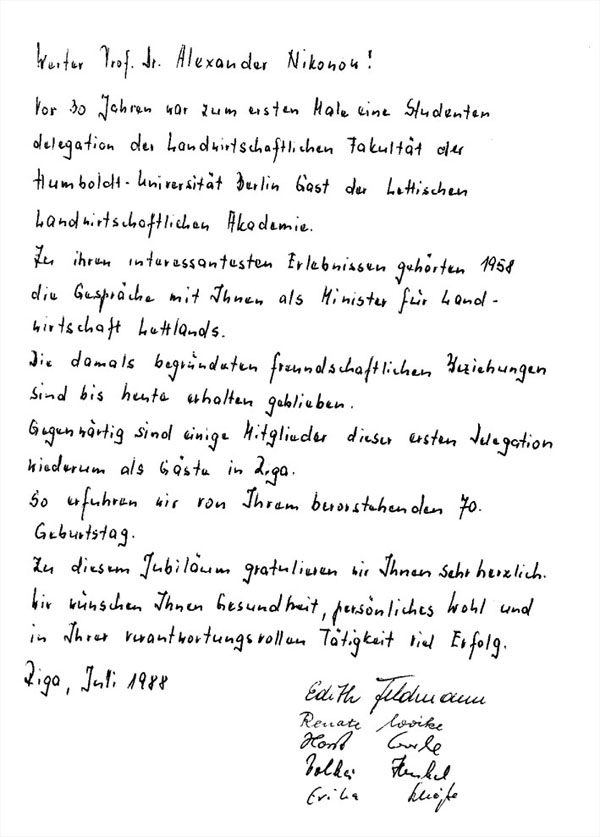 Werter Prof. Dr. Alexander Nikonow!
Vor 30 Jahren war zum ersten Male eine Studenten
delegation der Landwirtschaftlichen Fakultät der
Humboldt-Universität Berlin Gast der Lettischen
Landwirtschaftlichen Akademie.
Zu ihren interessantesten Erlebnissen gehörten 1958
die Gespräche mit Ihnen als Minister für Land-
wirtschaft Lettlands.
Die damals begründeten freundschaftlichen Beziehungen
sind bis heute erhalten geblieben.
Gegenwärtig sind einige Mitglieder dieser ersten Delegation
wiederum als Gäste in Riga.
So erfuhren wir von Ihrem bevorstehenden 70.
Geburtstag.
Zu diesem Jubiläum gratulieren wir Ihnen sehr herzlich.
Wir wünschen Ihnen Gesundheit, persönliches Wohl und
in Ihrer verantwortungsvollen Tätigkeit viel Erfolg.
Riga, Juli 1988
Edith Feldmann
Renate
Horst
Volker Henkel
Erika